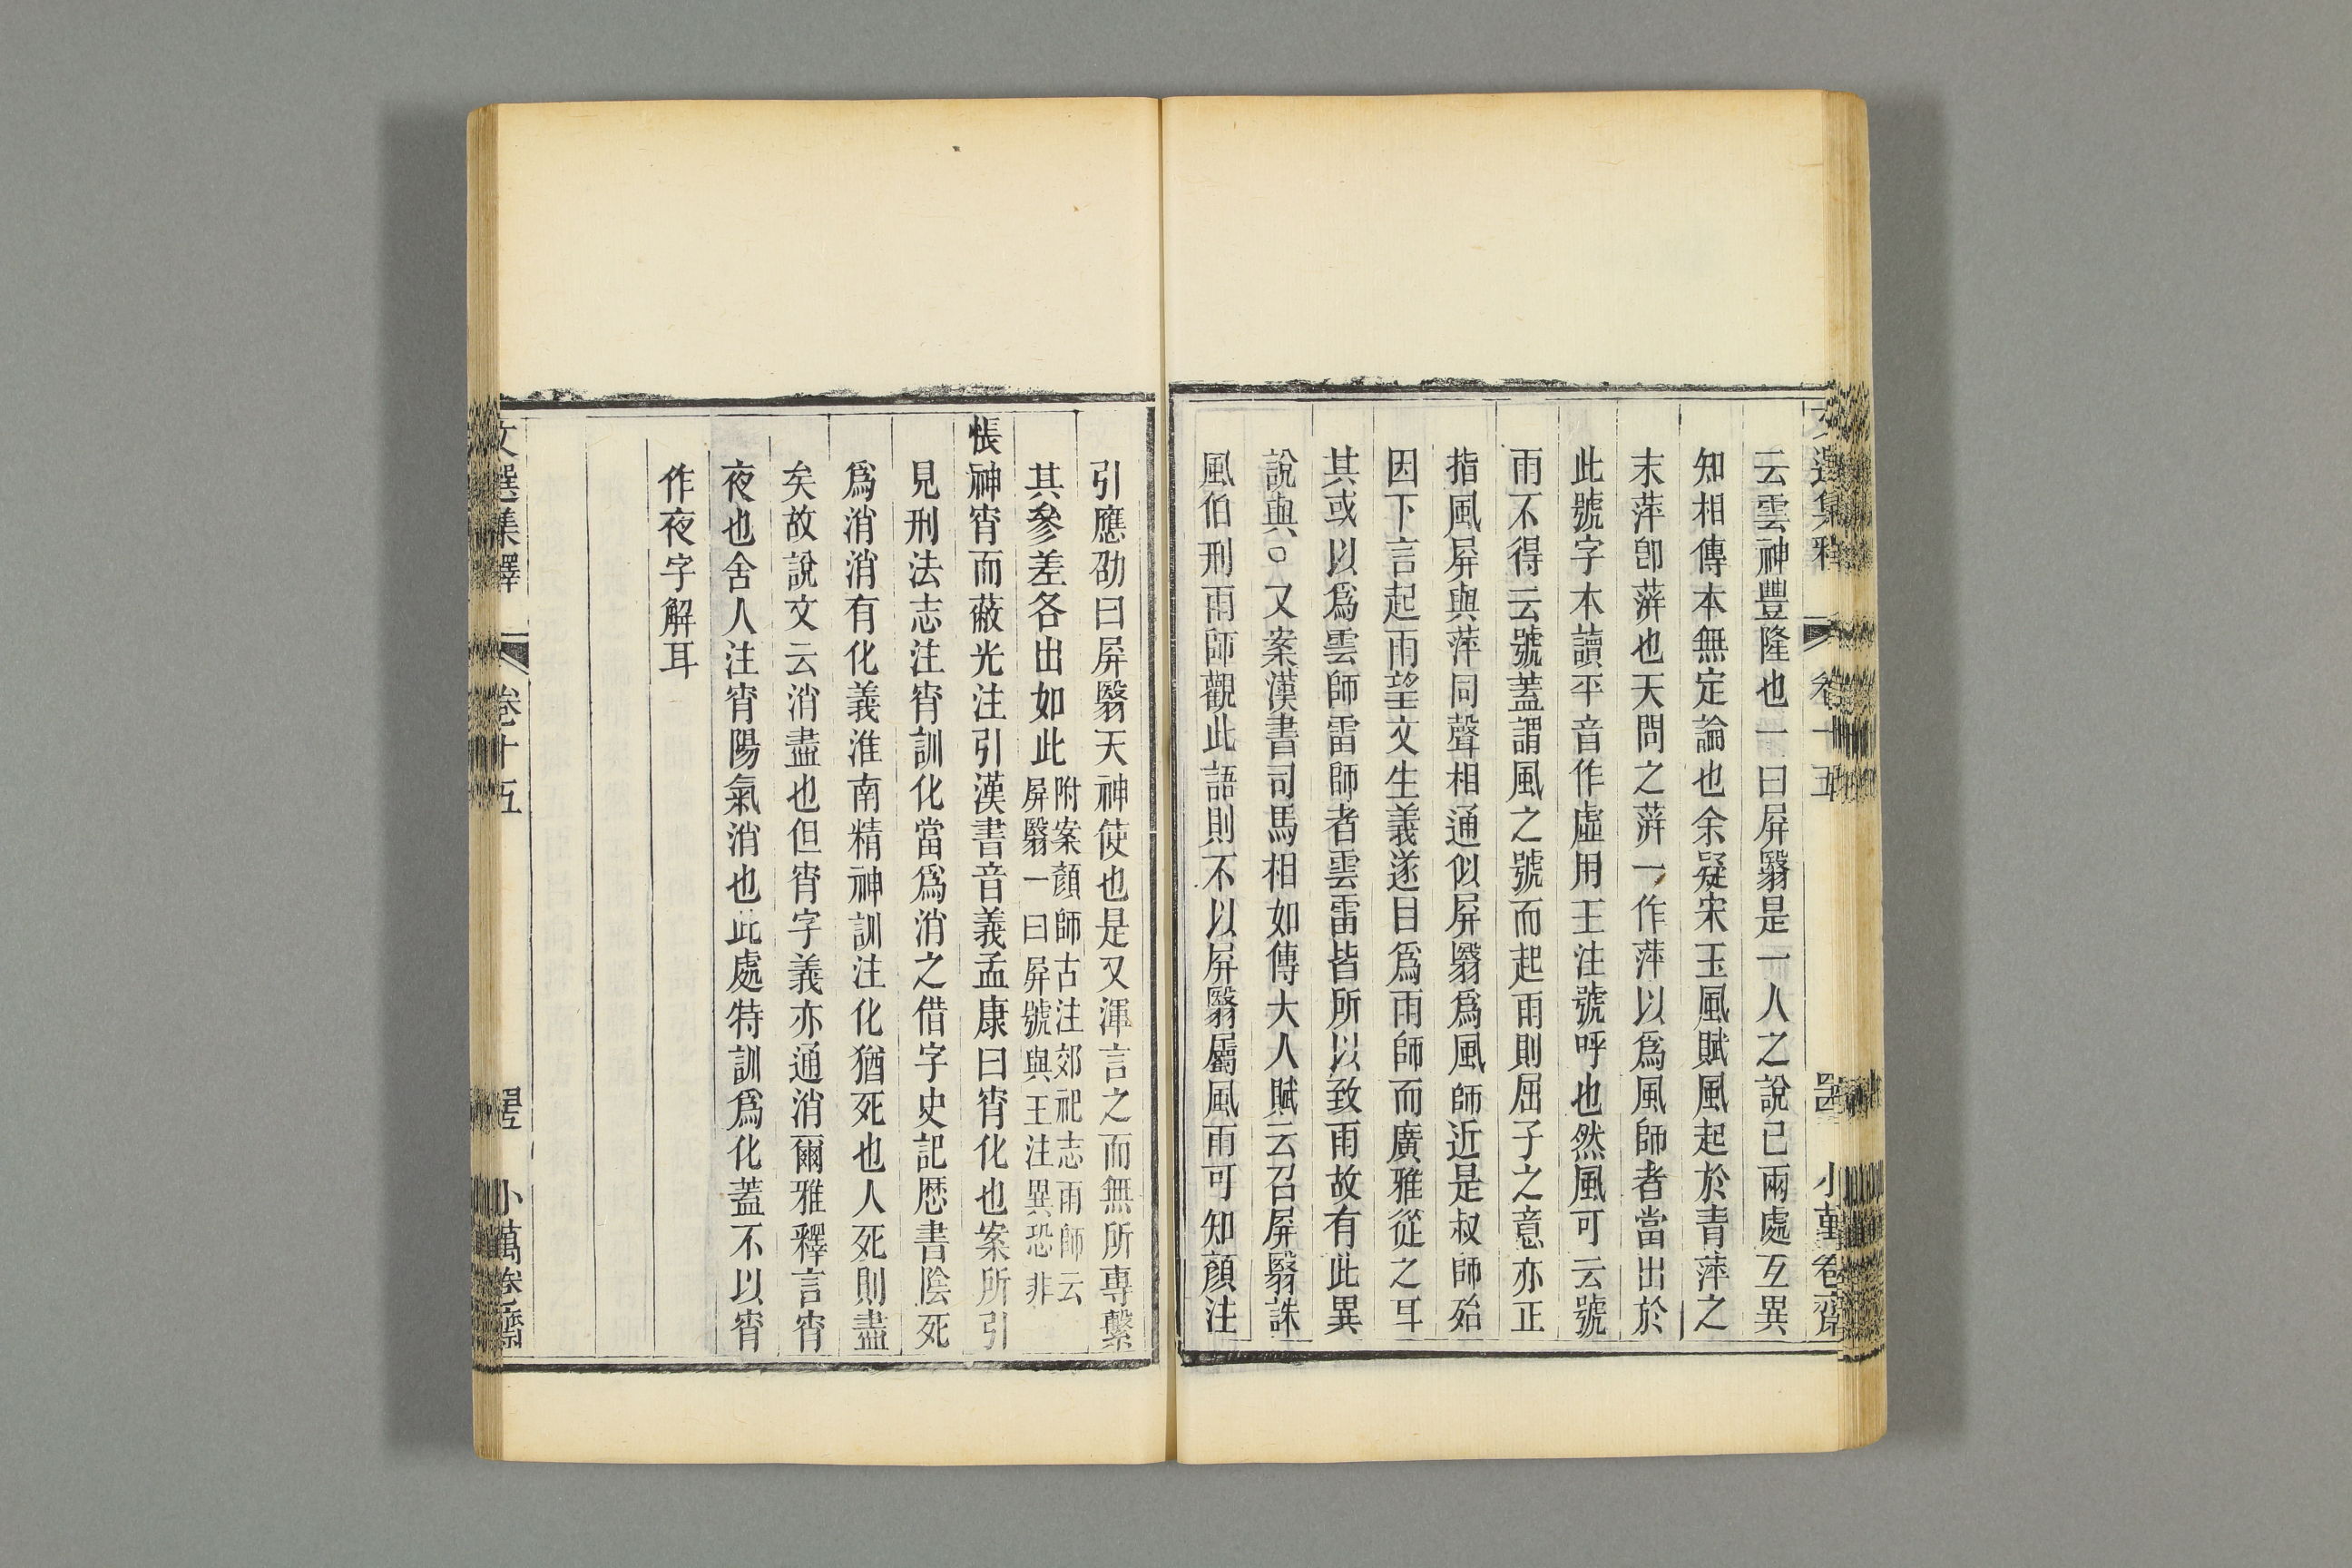 文選集釋 卷十五 小萬卷齋
云雲神豐隆也一曰屏翳是一人之說已兩處互異
知相傳本無定論也余疑宋玉風賦風起於青萍之
末萍卽蓱也天問之蓱一作萍以爲風師者當出於
此號字本讀平音作虛用王注號呼也然風可云號
雨不得云號蓋謂風之號而起雨則屈子之意亦正
指風屏與萍同聲相通似屏翳爲風師近是叔師殆
因下言起雨望文生義遂目爲雨師而廣雅從之耳
其或以爲雲師雷師者雲雷皆所以致雨故有此異
說與○又案漢書司馬相如傳大人賦云召屏翳誅
風伯刑雨師觀此語則不以屏翳屬風雨可知顏注
引應劭曰屏翳天神使也是又渾言之而無所專繫
其參差各出如此附案顏師古注郊祀志雨師云屏翳一曰屏號與王注異恐非
悵神宵而蔽光注引漢書音義孟康曰宵化也案所引
見刑法志注宵訓化當爲消之借字史記歴書陰死
爲消消有化義淮南精神訓注化猶死也人死則盡
矣故說文云消盡也但宵字義亦通消爾雅釋言宵
夜也舍人注宵陽氣消也此處特訓爲化蓋不以宵
作夜字解耳
文選集釋 卷十五 小萬卷齋